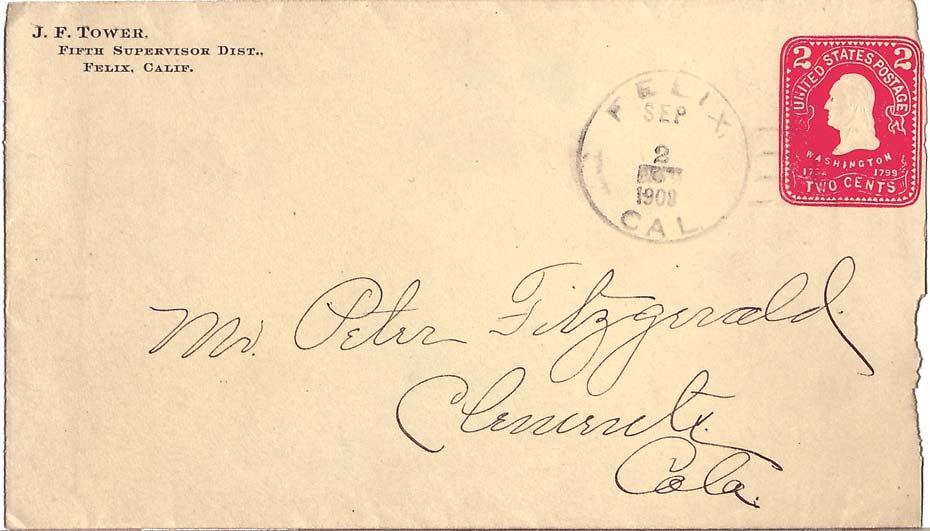 J. F. TOWER,
FIFTH SUPERVISOR DIST.,
FELIX, CALIF.
FELIX,
SEP
2
1908
CAL.
2 2
UNITED STATES POSTAGE
WASHINGTON
1799
TWO CENTS
Mr. Peter Fitzgerald.
Clements.